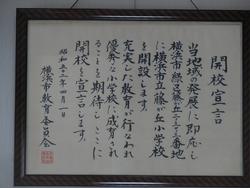 開校宣言
当地域の発展に即応し
横浜市緑区藤が丘二ー三ー三番地
に横浜市立藤が丘小学校
を開設します。
充実した教育が行なわれ
優秀な小学校に成育され
ることを期待しここに
開校を宣言します。
昭和五十三年四月一日
横浜市教育委員会